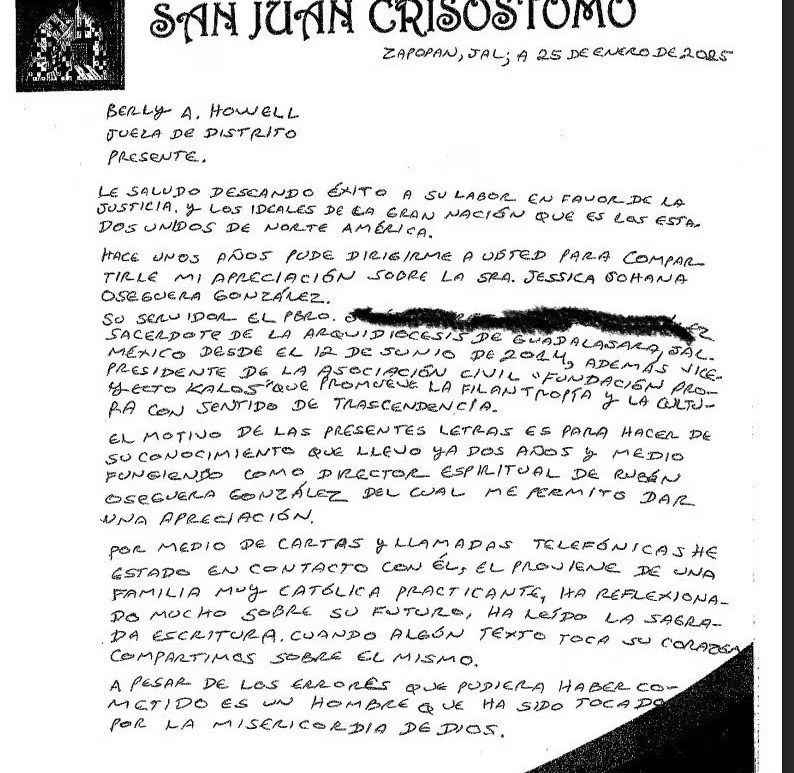 SAN JUAN CRISOSTOMO
ZAPOPAN, JAL; A 25 DE ENERO DE 2025
BERLY A. HOWELL
JUEZA DE DISTRITO
PRESENTE.
LE SALUDO DESEANDO ÉXITO A SU LABOR EN FAVOR DE LA
JUSTICIA. Y LOS IDEALES DE LA GRAN NACIÓN QUE ES LOS ESTA-
DOS UNIDOS DE NORTE AMÉRICA.
HACE UNOS AÑOS PUDE DIRIGIRME A USTED PARA COMPAR-
TIRLE MI APRECIACIÓN SOBRE LA SRA. JESSICA JOHANA
OSEGUERA GONZÁLEZ.
SU SERVIDOR EL PBRO.
SACERDOTE DE LA ARQUIDIOCESIS DE GUADALAJARA, JAL.
MÉXICO DESDE EL 12 DE JUNIO DE 2014, ADEMÁS VICE-
PRESIDENTE DE LA ASOCIACIÓN CIVIL "FUNDACIÓN PRO-
YECTO KALOS" QUE PROMUEVE LA FILANTROPÍA Y LA CULTU-
RA CON SENTIDO DE TRASCENDENCIA.
EL MOTIVO DE LAS PRESENTES LETRAS ES PARA HACER DE
SU CONOCIMIENTO QUE LLEVO YA DOS AÑOS Y MEDIO
FUNGIENDO COMO DIRECTOR ESPIRITUAL DE RUBÉN
OSEGUERA GONZÁLEZ DEL CUAL ME PERMITO DAR
UNA APRECIACIÓN.
POR MEDIO DE CARTAS Y LLAMADAS TELEFÓNICAS HE
ESTADO EN CONTACTO CON ÉL, EL PROVIENE DE UNA
FAMILIA MUY CATÓLICA PRACTICANTE, HA REFLEXIONA-
DO MUCHO SOBRE SU FUTURO, HA LEÍDO LA SAGRA-
DA ESCRITURA. CUANDO ALGÚN TEXTO TOCA SU CORAZÓN
COMPARTIMOS SOBRE EL MISMO.
A PESAR DE LOS ERRORES QUE PUDIERA HABER CO-
METIDO ES UN HOMBRE QUE HA SIDO TOCADO
POR LA MISERICORDIA DE DIOS.